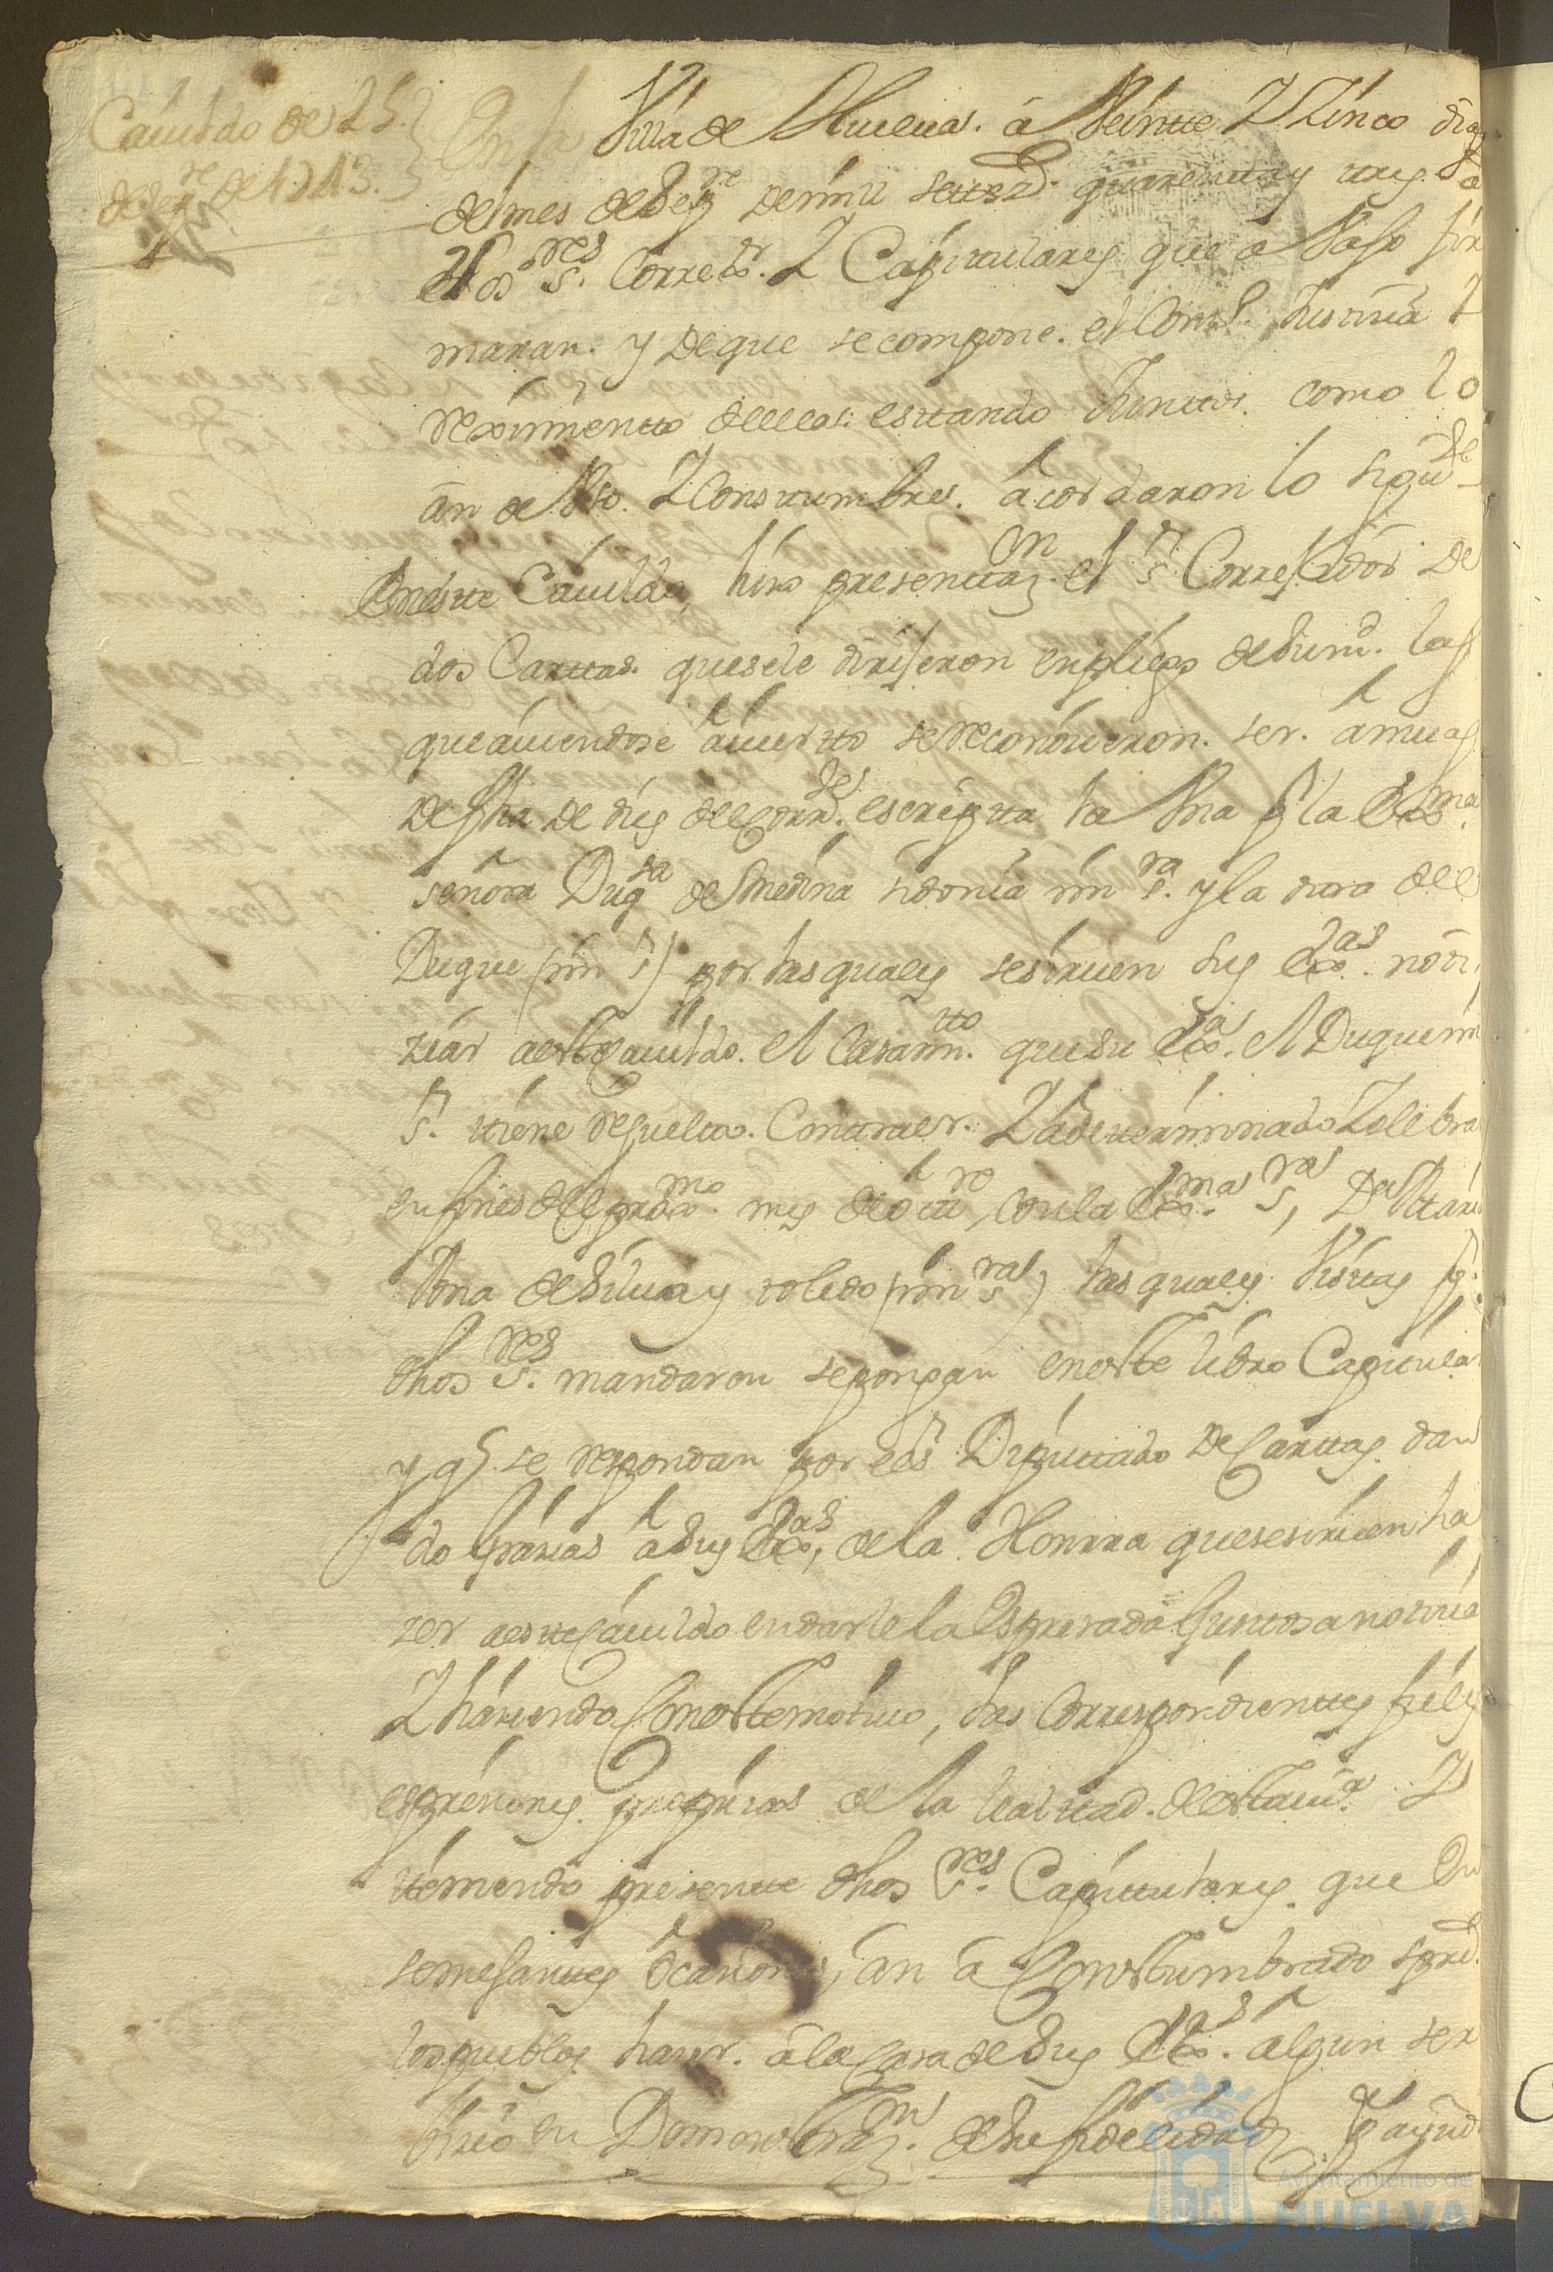 Cauildo de 25
de Sepre de 1743
En la Villa de Huelua. â Veintte Y Zinco dias
del mes de Sepre de mil settezs. quarentta y tres
los sres. Correxor. Y Capittulares que a Vajo fir
maran. y de que se compone. el Conzo. Justizia Y
reximientto de ella: esttando Junttos. como lo
an de Vso. Y Consttumbre. acordaron lo siguite
En estte Cauildo, hizo presenttazon. el sr. Correxidor de
dos Carttas. que se le dirijeron en pliego de Sund. las
que auiendose auiertto se reconozieron. ser. amuas
de fha de diez del Corrte. escripta la Vna pr la Exma
señora Duqsa de Medina sidonia mi sra. y la otra del
Duque (mi sr) por las quales se siruen sus Exas. noti
ziar a este Cauildo. el Casamtto. que Su Exa. el Duque mi
sr. tiene resuelto. Contraer. Y a determinado Zelebrar
en fines del proxmo. mes de octre, con la Exma sra, Da Maria
na de Silua y toledo (mi sra) las quales Vistas pr.
dhos sres. mandaron se pongan en este libro Capitular
y qe se respondan por el sr Diputtado de Carttas. dan
do Grazias a Sus Exas, de la Honrra que se siruen ha
zer a estte Cauildo en darle la Espresada Gustosa notizia
Y haziendo Con este motiuo, las Correspondienttes fieles
espresiones propias de la lealtad. de esta Va. Y
teniendo presentte dhos sres. Capittulares. que En
semejanttes ocasiones, an aCostumbrado sPre.
los pueblos hazer. a la Casa de Sus Exas. algun ser
bizio en Demostrazon. de su fidelidad
Ayuntamiento de
HUELVA